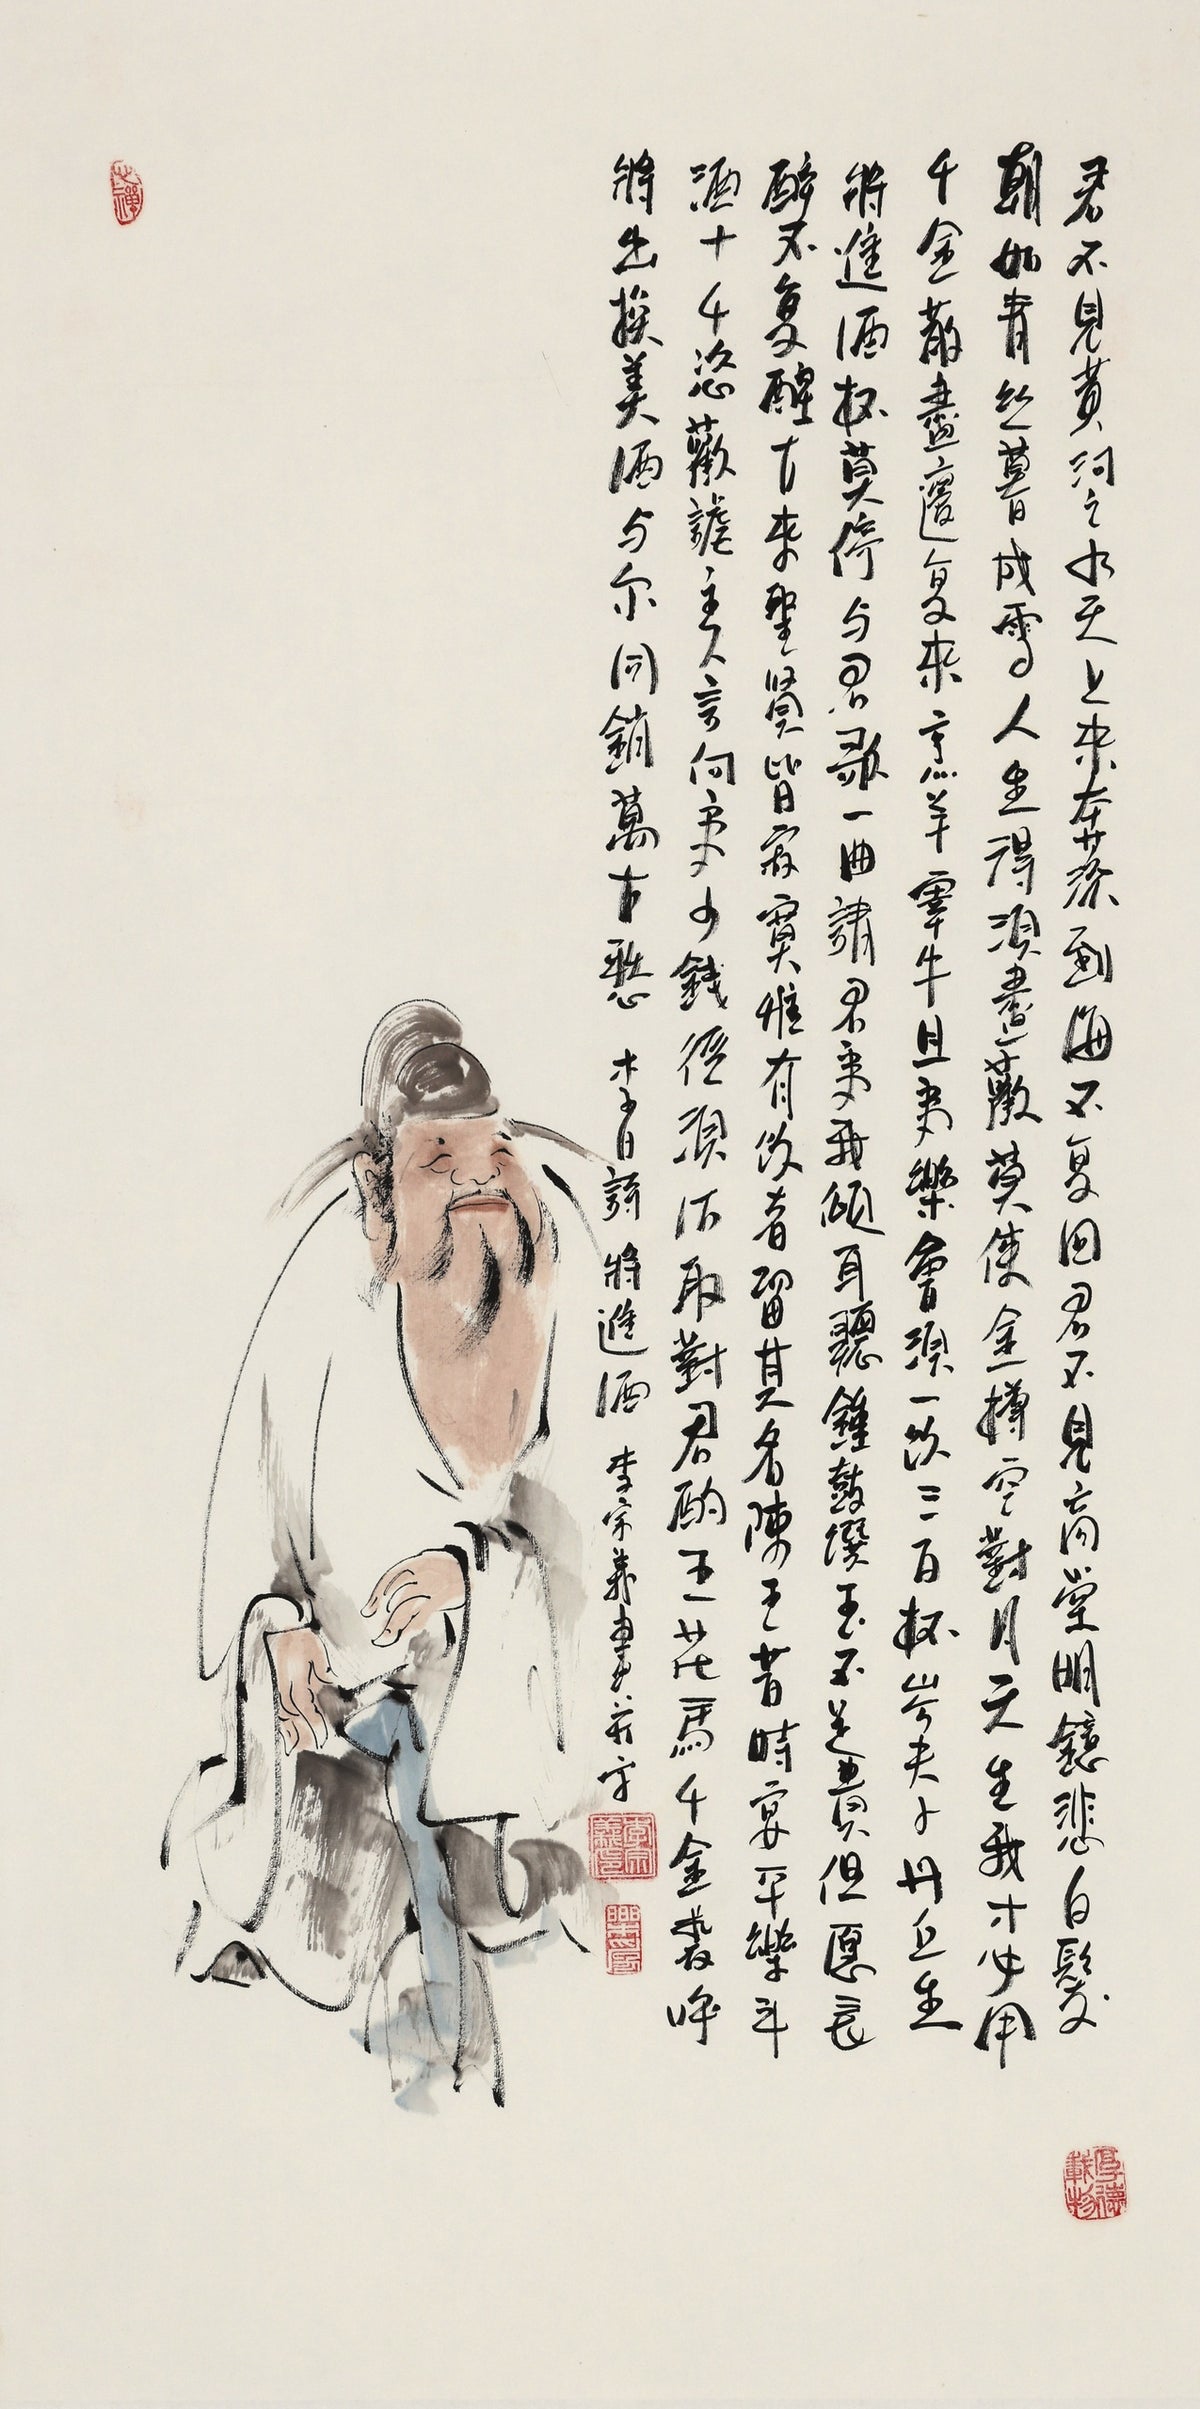 君不見黄河之水天上来奔流到海不复回君不見高堂明鏡悲白髮
朝如青丝暮成雪人生得須盡歡莫使金樽空對月天生我才必用
千金散盡還复来烹羊宰牛且為樂會須一飲三百杯岑夫子丹丘生
将進酒杯莫停与君歌一曲請君為我傾耳聽鐘鼓饌玉不足貴但愿長
醉不复醒古来聖賢皆寂寞惟有飲者留其名陳王昔時宴平樂斗
酒十千恣歡謔主人言何為少錢徑須沽取對君酌五花馬千金裘呼
将出换美酒与尔同銷萬古愁 李白詩 将進酒 李宗義画并字
李宗義印
厚德載物